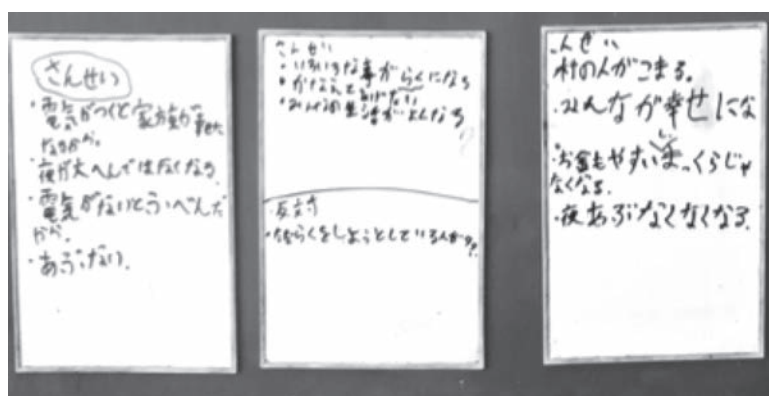 さんせい
・電気がつくと家族が幸せに
なるから。
・夜が大へんではなくなる。
・電気がないとたいへんだ
から。
・あぶない。
さんせい
・いろいろな事がらくになる
・みんなの生活がよくなる
・反対
らくをしようとしている人が
んせい
村の人がこまる。
・みんなが幸せにな
・お金もやすいしまっくらじゃ
なくなる。
・夜あぶなくなくなる。